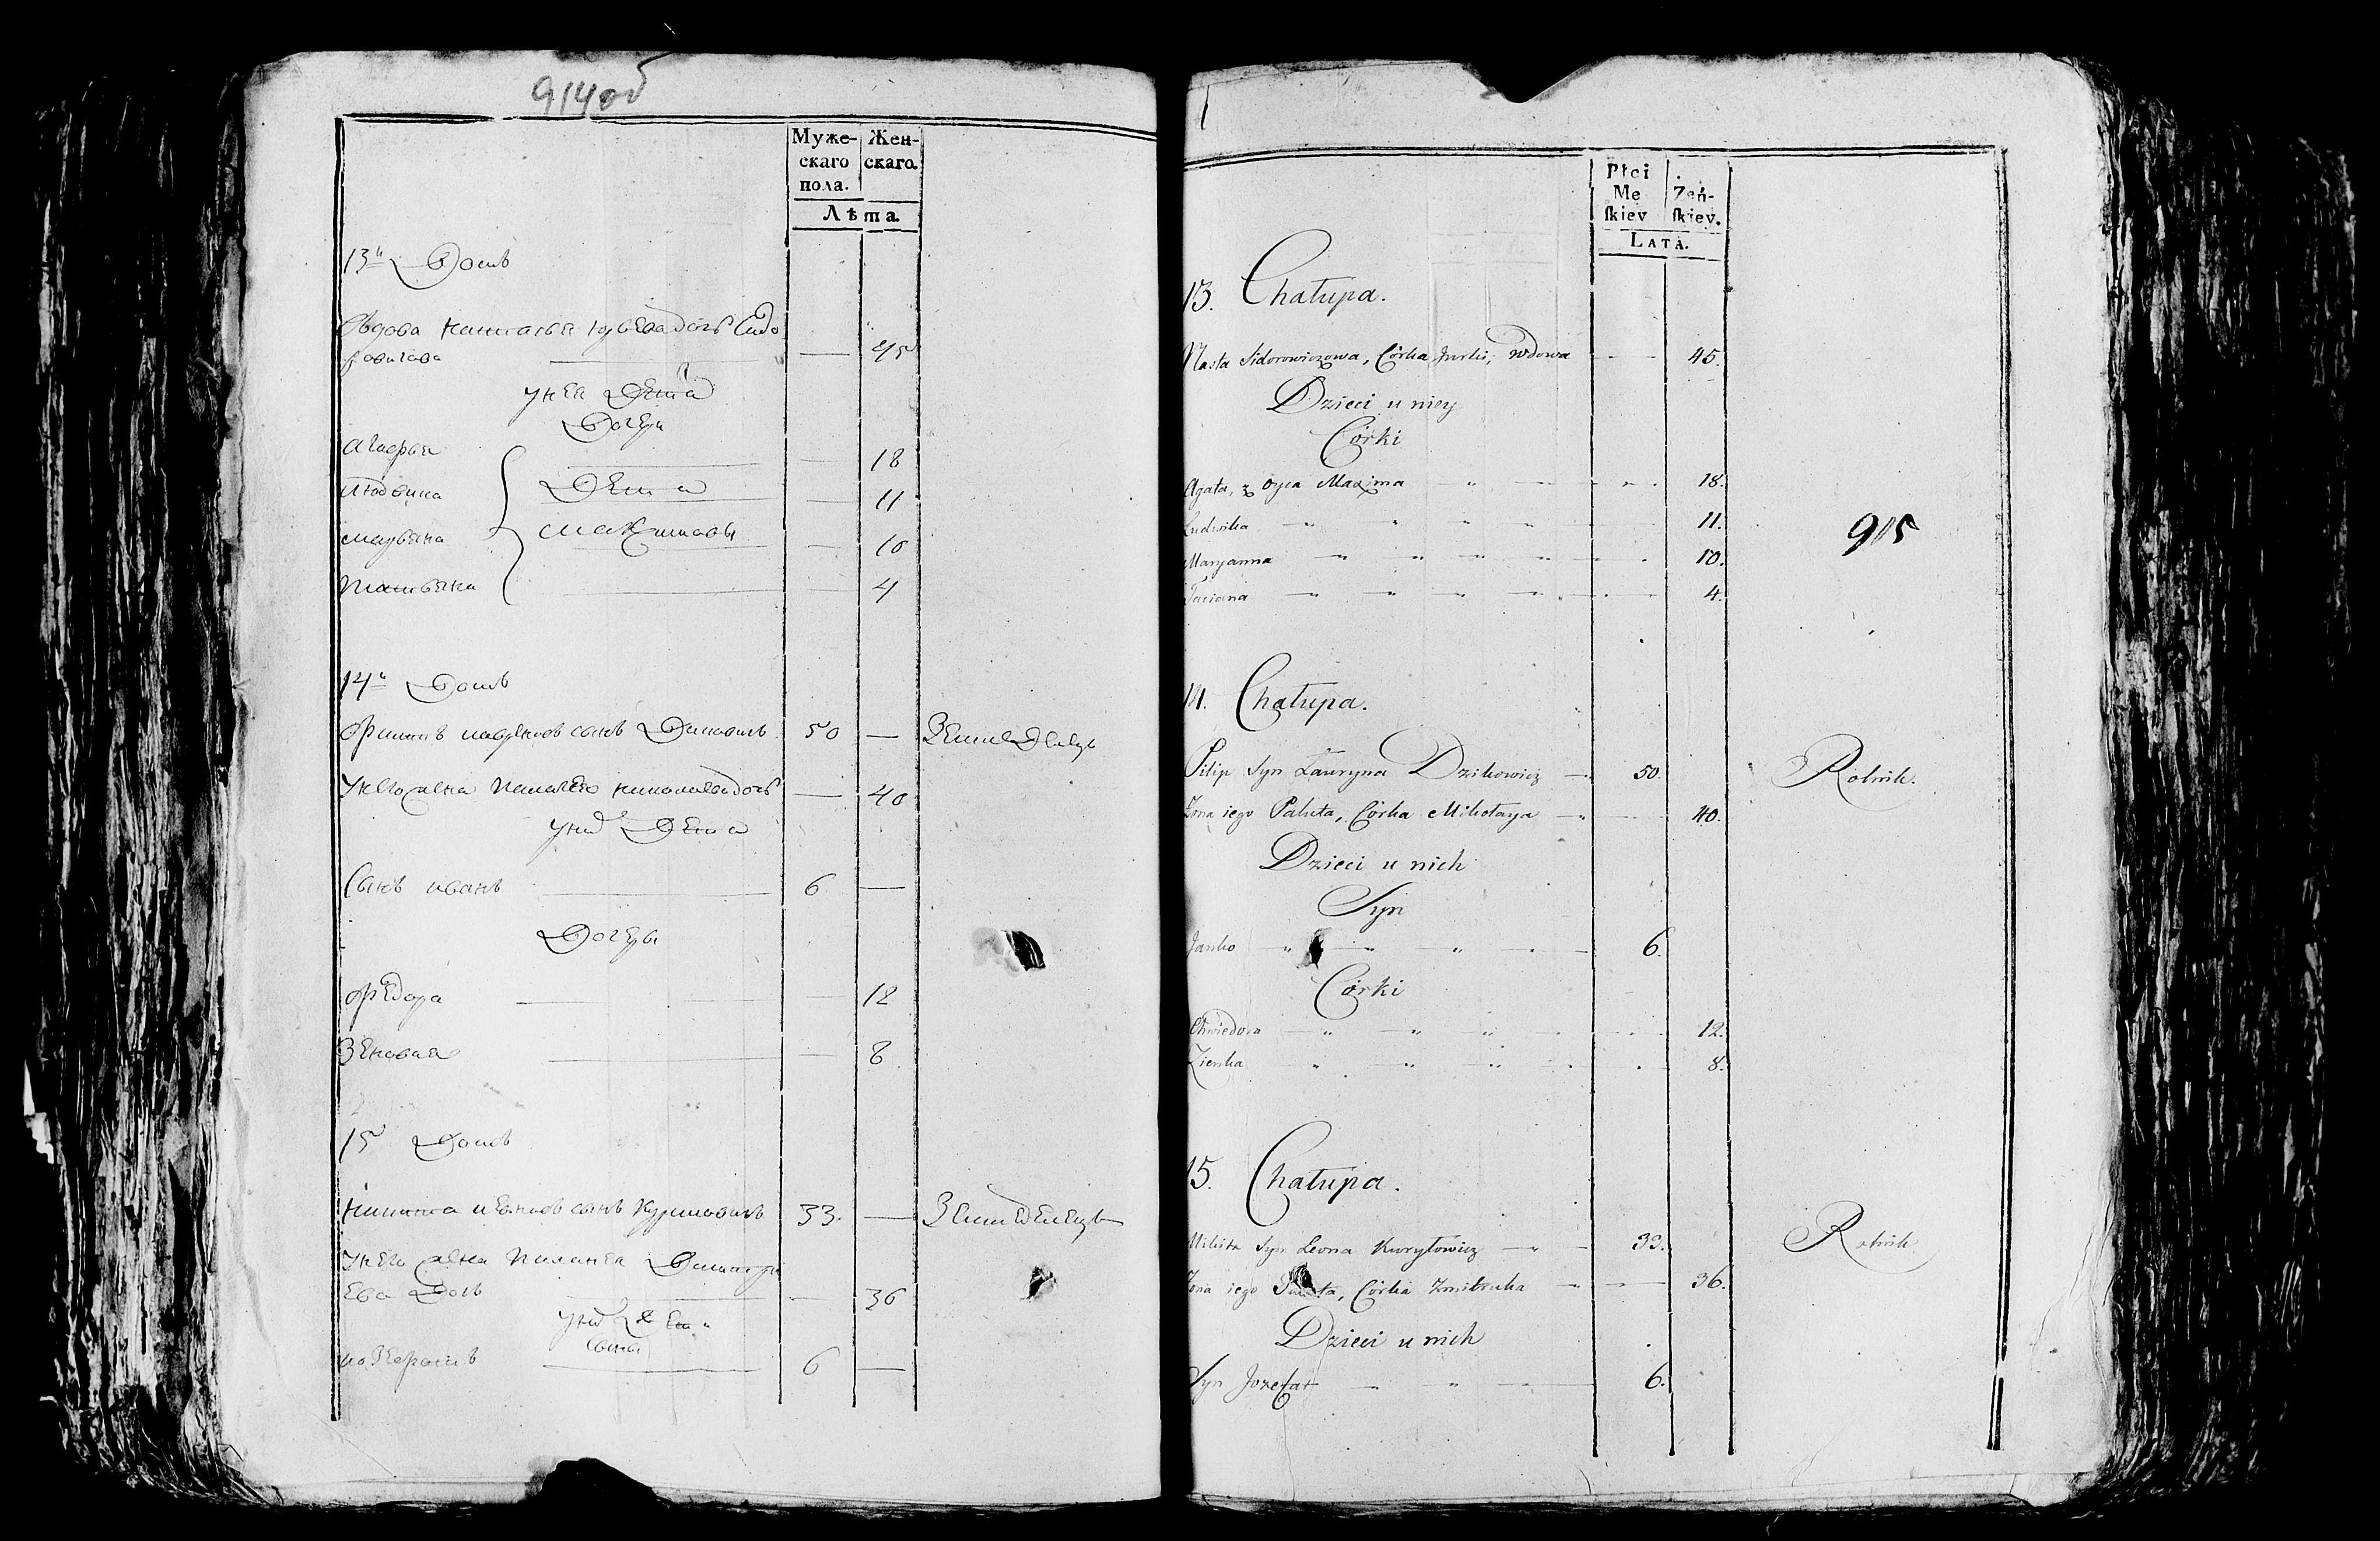 914об
Муже-
скаго
пола.
Жен-
скаго.
Лѣта
13й Домъ
Вдова Настасья Юрьева дочь Сидо
ровичова — 45
у нея Дети
Дочери
Агафья — 18
Людвика Дети — 11
Марьяна Максимовы — 10
Татьяна — 4
14й Домъ
Филипъ Лавреновъ сынъ 50 — Земледелецъ
У него жена Палагея Николаева дочь — 40
у них Дети
Сынъ Иванъ 6 —
Дочеры
Федора — 12
Зеновия — 8
15 Домъ
Никита Леоновъ сынъ Куриловичъ 33. — Земледелецъ
У него жена Пелагея Дмитри
ева Дочь — 36
у них Дети
сыны
Иозефатъ 6 —
Płci
Me
ſkiey
Zeń-
ſkiey.
LATA.
13. Chałupa.
Nasta Sidorowiczowa, Córka Jurki, wdowa — 45.
Dzieci u niey
Córki
Agata, z oyca Maxima — 18.
Ludwika — 11.
Maryanna — 10.
Taciana — 4.
905
14. Chałupa.
Pilip Syn Łauryna Dzikowicz — 50. Rolnik.
Żona iego Pałuta, Córka Mikołaya — 40.
Dzieci u nich
Syn
Janko — 6.
Córki
Chwiedora — 12.
Zienka — 8.
15. Chałupa.
Mikita Syn Leona Kuryłowicz — 33. Rolnik
Żona iego Córka Zmitruka — 36.
Dzieci u nich
Syn Jozefat — 6.